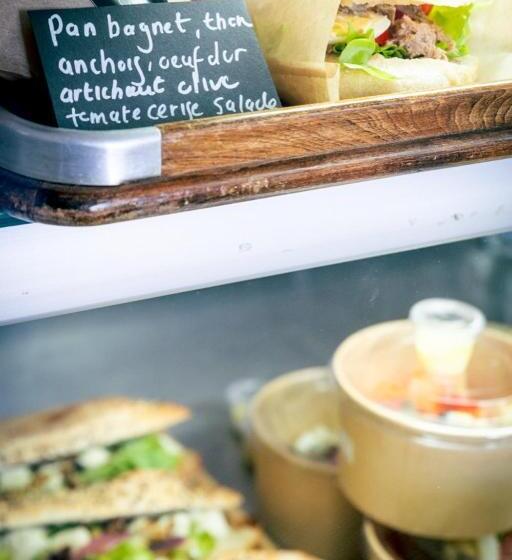 Pan bagnet, thon
anchois, oeuf dur
artichaut olive
tomate cerise salade